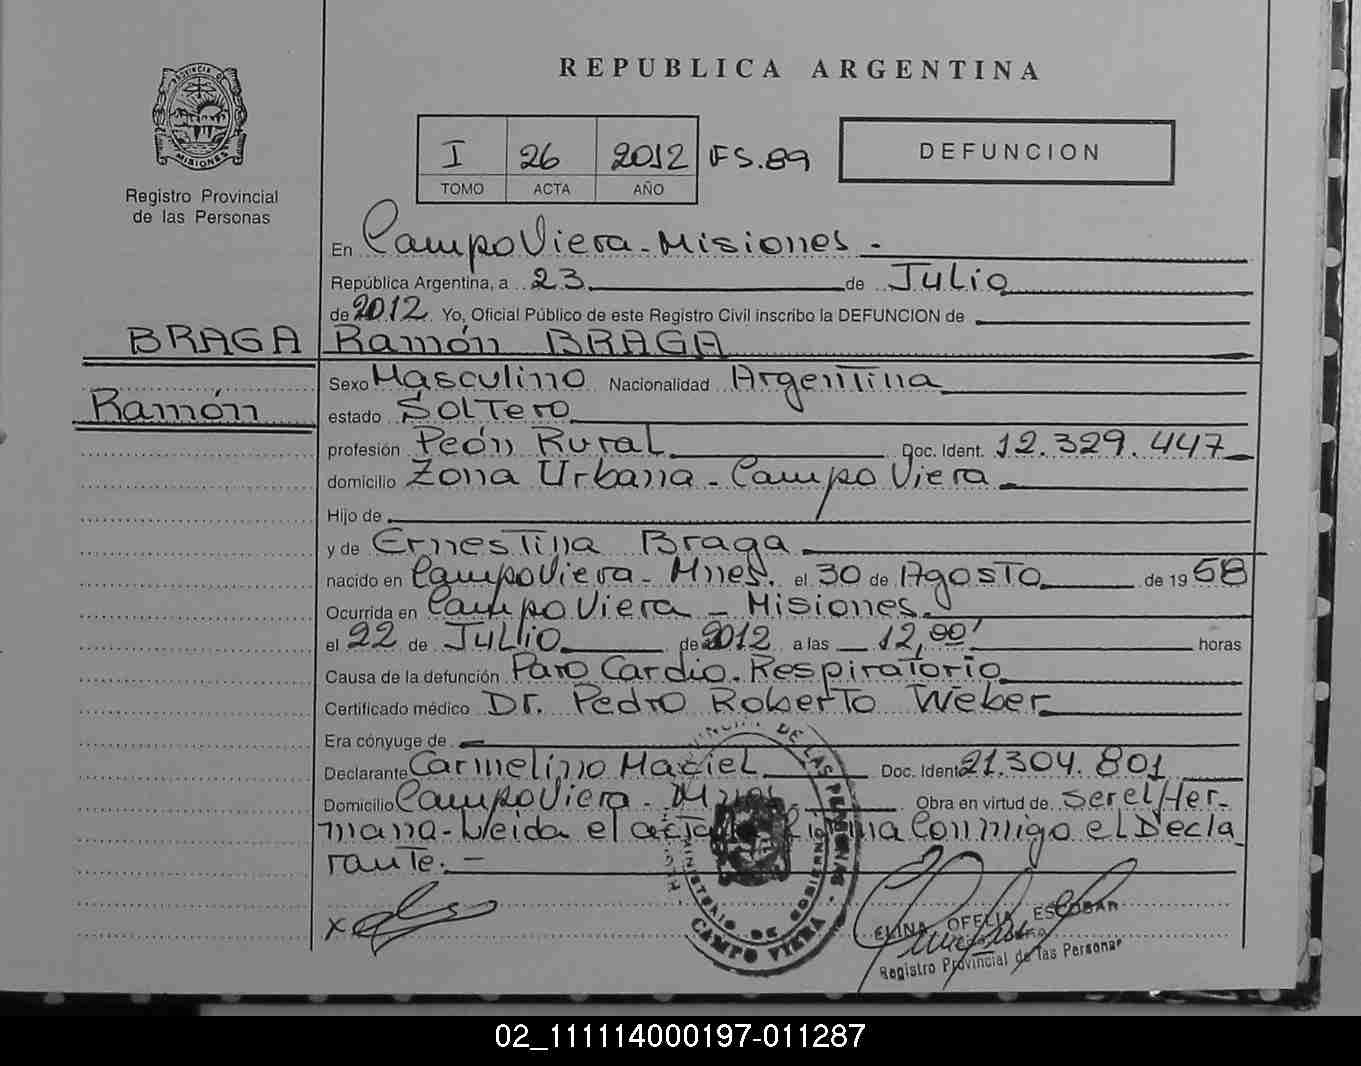 REPUBLICA ARGENTINA
PROVINCIA DE
MISIONES
Registro Provincial
de las Personas
I 26 2012 FS.89
TOMO ACTA AÑO
DEFUNCION
En Campo Viera - Misiones -
República Argentina, a 23 de Julio
de 2012 Yo, Oficial Público de este Registro Civil inscribo la DEFUNCION de
BRAGA Ramón BRAGA
Sexo Masculino Nacionalidad Argentina
Ramón
estado Soltero
profesión Peón Rural Doc. Ident. 12.329.447
domicilio Zona Urbana - Campo Viera
Hijo de
y de Ernestina Braga
nacido en Campo Viera - Mnes. el 30 de Agosto de 1958
Ocurrida en Campo Viera - Misiones.
el 22 de Julio de 2012 a las 12,00' horas
Causa de la defunción Paro Cardio. Respiratorio
Certificado médico Dr. Pedro Roberto Weber
Era cónyuge de
Declarante Carmelino Maciel Doc. Ident 21.304.801
Domicilio Campo Viera - Mnes. Obra en virtud de ser el Her-
mano - Leida el acta firma Conmigo el Decla
rante. -
x
DE LAS PERSONAS
MINISTERIO DE GOBIERNO
CAMPO VIERA
ELINA OFELIA ESCOBAR
Registro Provincial de las Personas
02_111114000197-011287